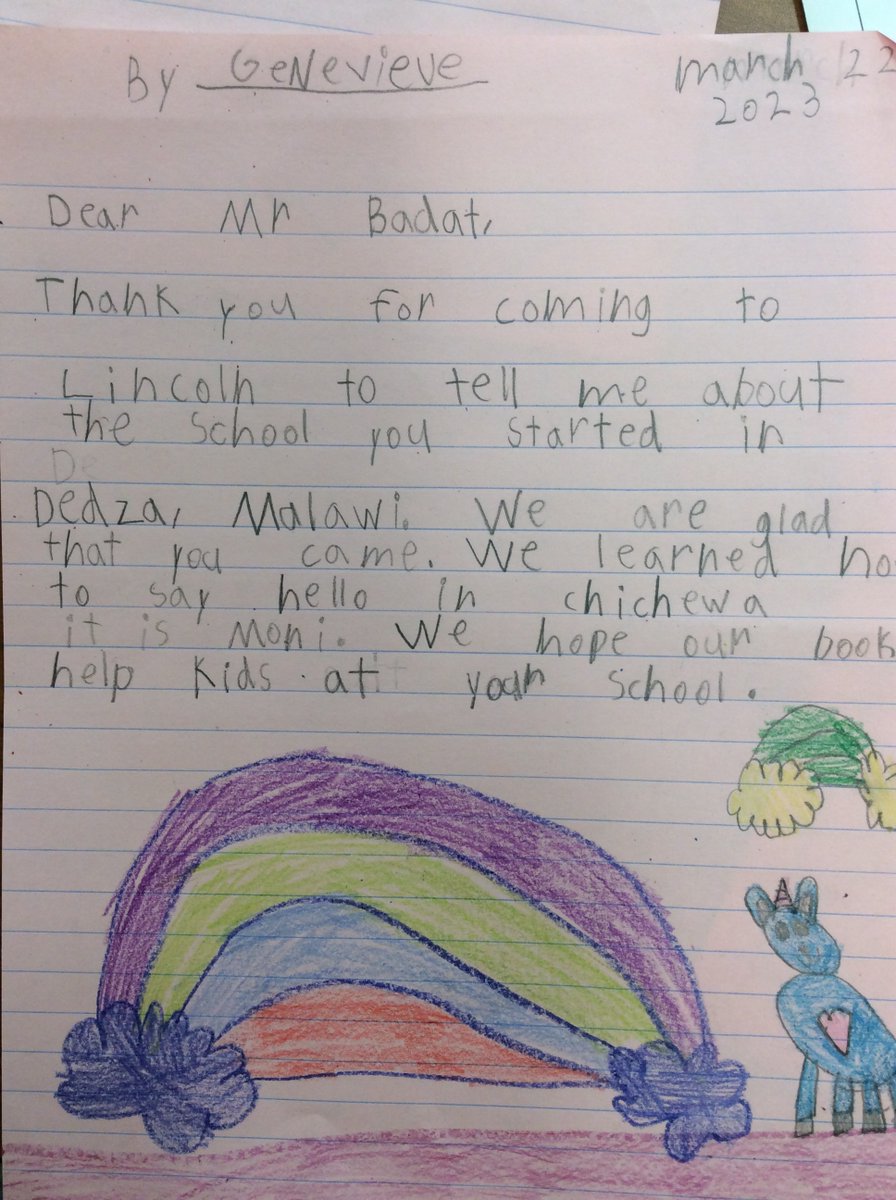 By Genevieve
march 22
2023
Dear Mr Badat,
Thank you for coming to
Lincoln to tell me about
the school you started in
De
Dedza, Malawi. We are glad
that you came. We learned ho
to say hello in chichewa
it is Moni. We hope our book
help kids at your school.